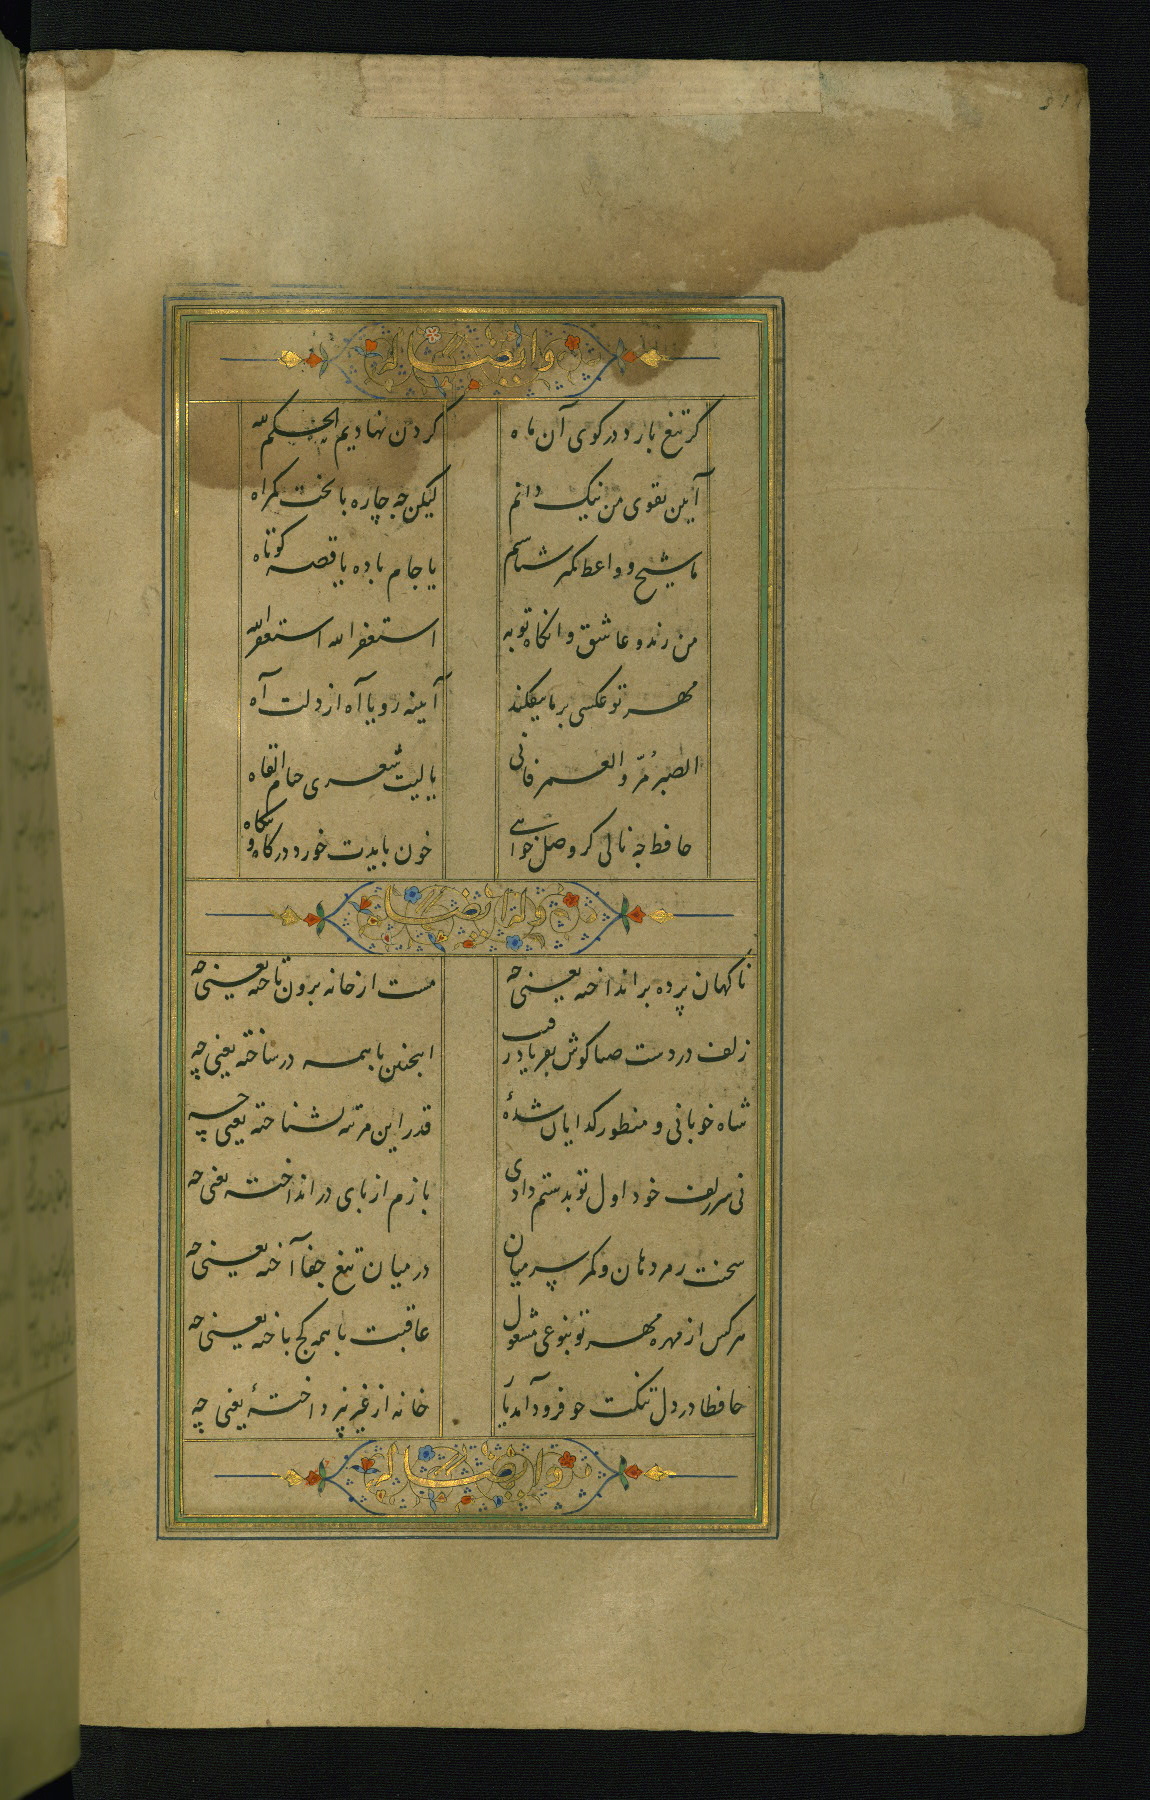 وایضا له
کر تیغ بارد در کوی آن ماه کردن نهادیم الحکم لله
آیین تقوی من نیک دانم لیکن چه چاره با بخت کمراه
ما شیخ و واعظ کمتر شناسیم یا جام باده یا قصه کوتاه
من رند و عاشق وانکاه توبه استغفر الله استغفر الله
مهر تو عکسی بر ما نیفکند آیینه رویا آه از دلت آه
الصبر مُرّ والعمر فانی یا لیت شعری حتام القاه
حافظ چه نالی کر وصل خواهی خون بایدت خورد در کاه و بیکاه
وله ایضا
ناکهان پرده بر انداخته یعنی چه مست از خانه برون تاخته یعنی چه
زلف در دست صبا کوش بفریاد رقیب اینچنین با همه در ساخته یعنی چه
شاه خوبانی و منظور کدایان شدهٔ قدر این مرتبه نشناخته یعنی چه
نی سر زلف خود اول تو بدستم دادی بازم از پای در انداخته یعنی چه
سخنت رمز دهان و کمر سر میان در میان تیغ جفا آخته یعنی چه
هرکس از مهره مهر تو بنوعی مشغول عاقبت با همه کج باخته یعنی چه
حافظا در دل تنکت چو فرود آمد یار خانه از غیر نپرداختهٔ یعنی چه
وایضا له